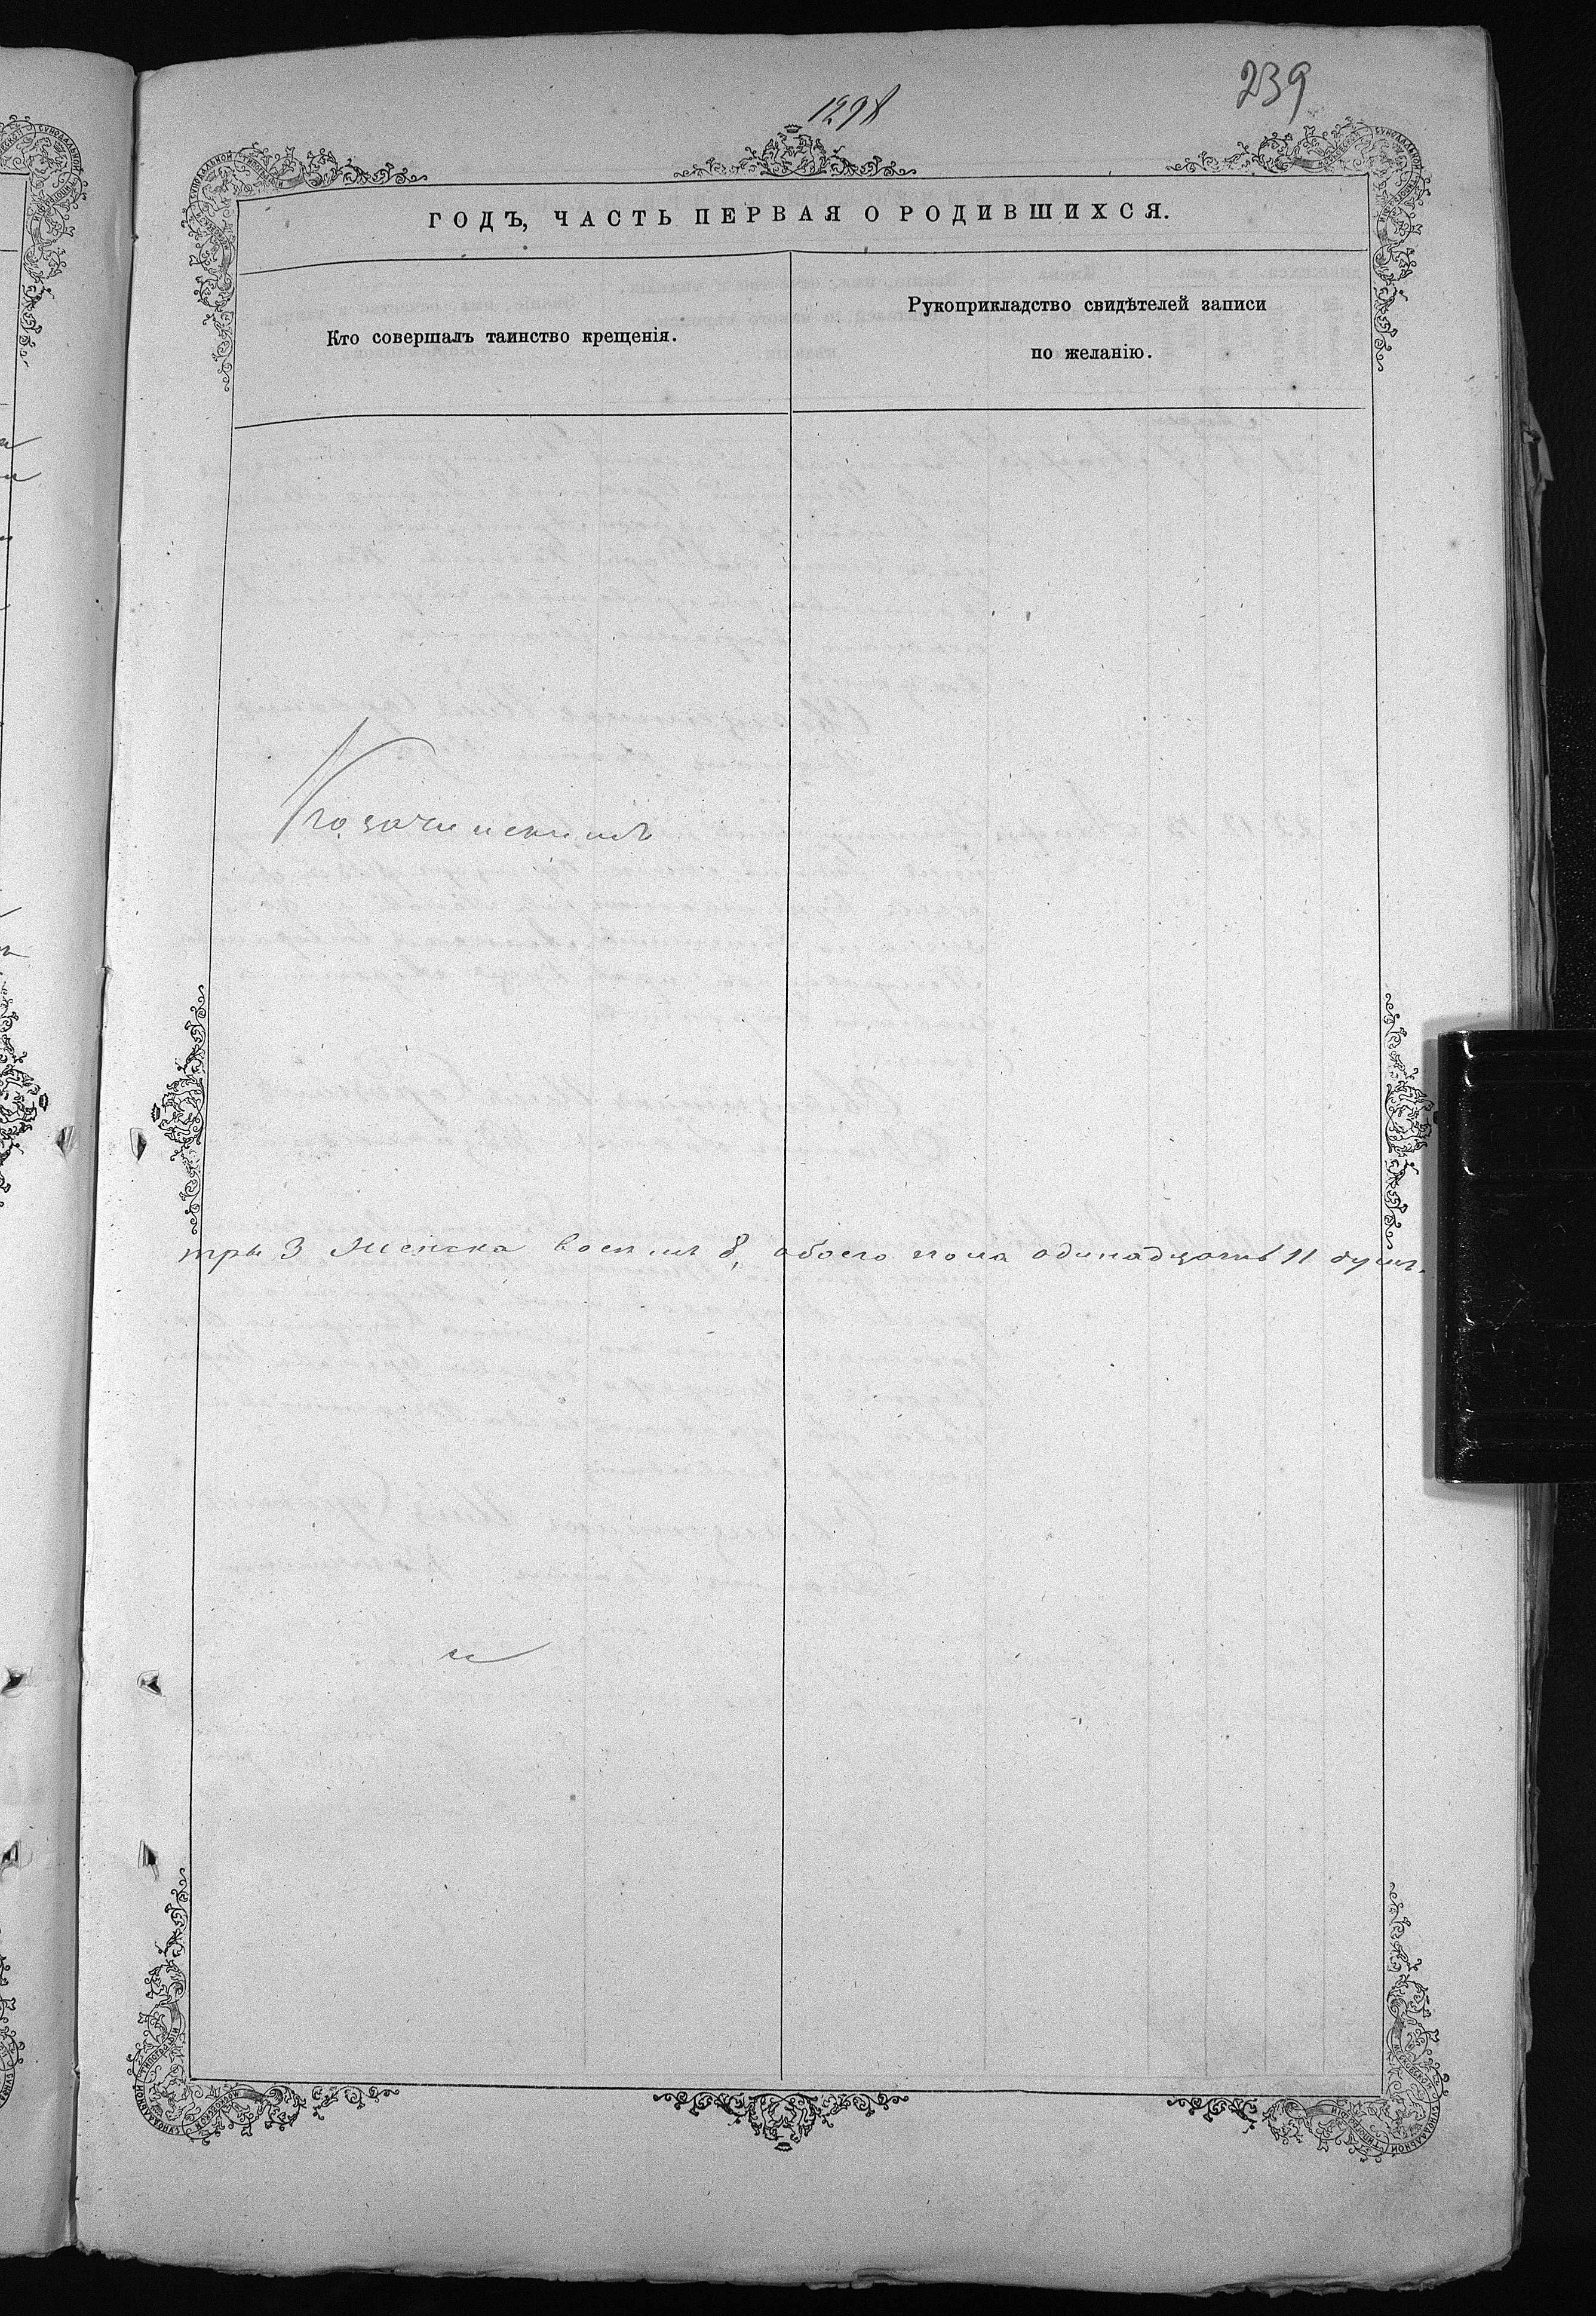 239
1298
ГОДЪ, ЧАСТЬ ПЕРВАЯ О РОДИВШИХСЯ.
Кто совершалъ таинство крещенія.
Рукоприкладство свидѣтелей записи
по желанію.
три 3 женска восемь 8, обоего пола одинадцать 11 душъ.
и